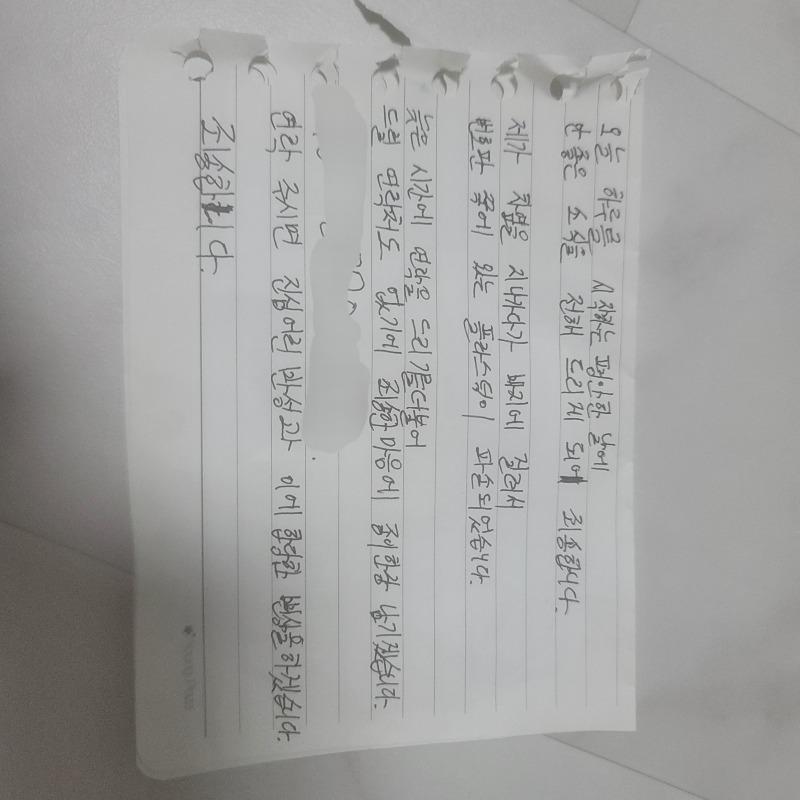 오늘 하루를 시작하는 평안한 날에
안 좋은 소식을 전해 드리게 되어 죄송합니다.
제가 차옆을 지나가다가 바지에 걸려서
번호판 쪽에 있는 플라스틱이 파손되었습니다.
늦은 시간에 연락을 드리기를 더불어
드릴 연락처도 없기에 죄송한 마음에 종이 한장 남기겠습니다.
연락 주시면 진심어린 반성과 이에 합당한 변상을 하겠습니다.
죄송합니다.